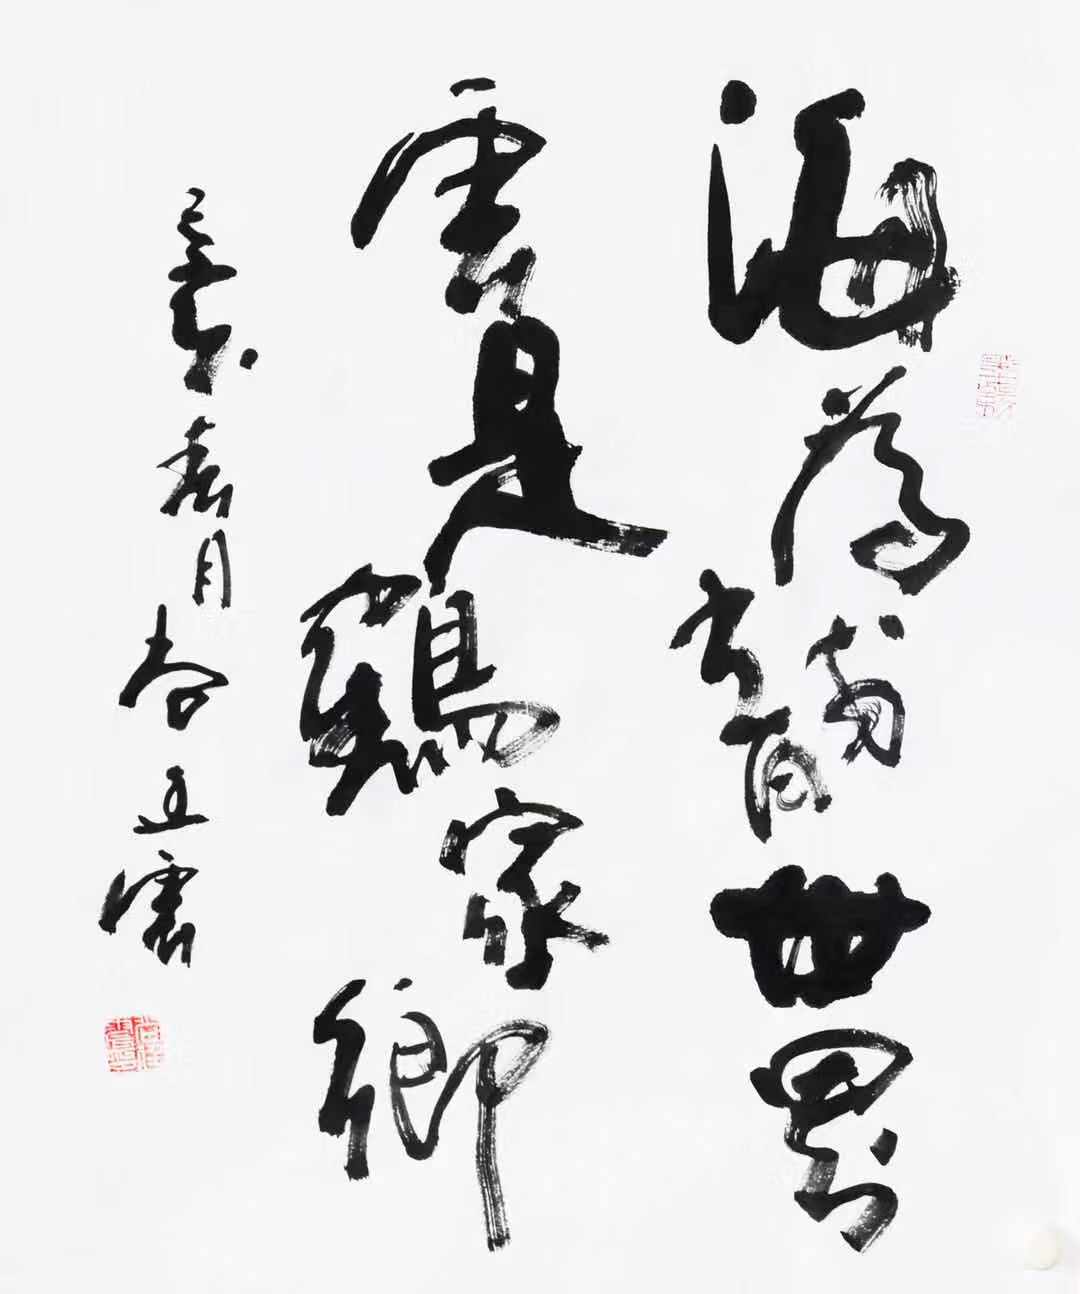 海為龍世界
雲是鶴家鄉
春月